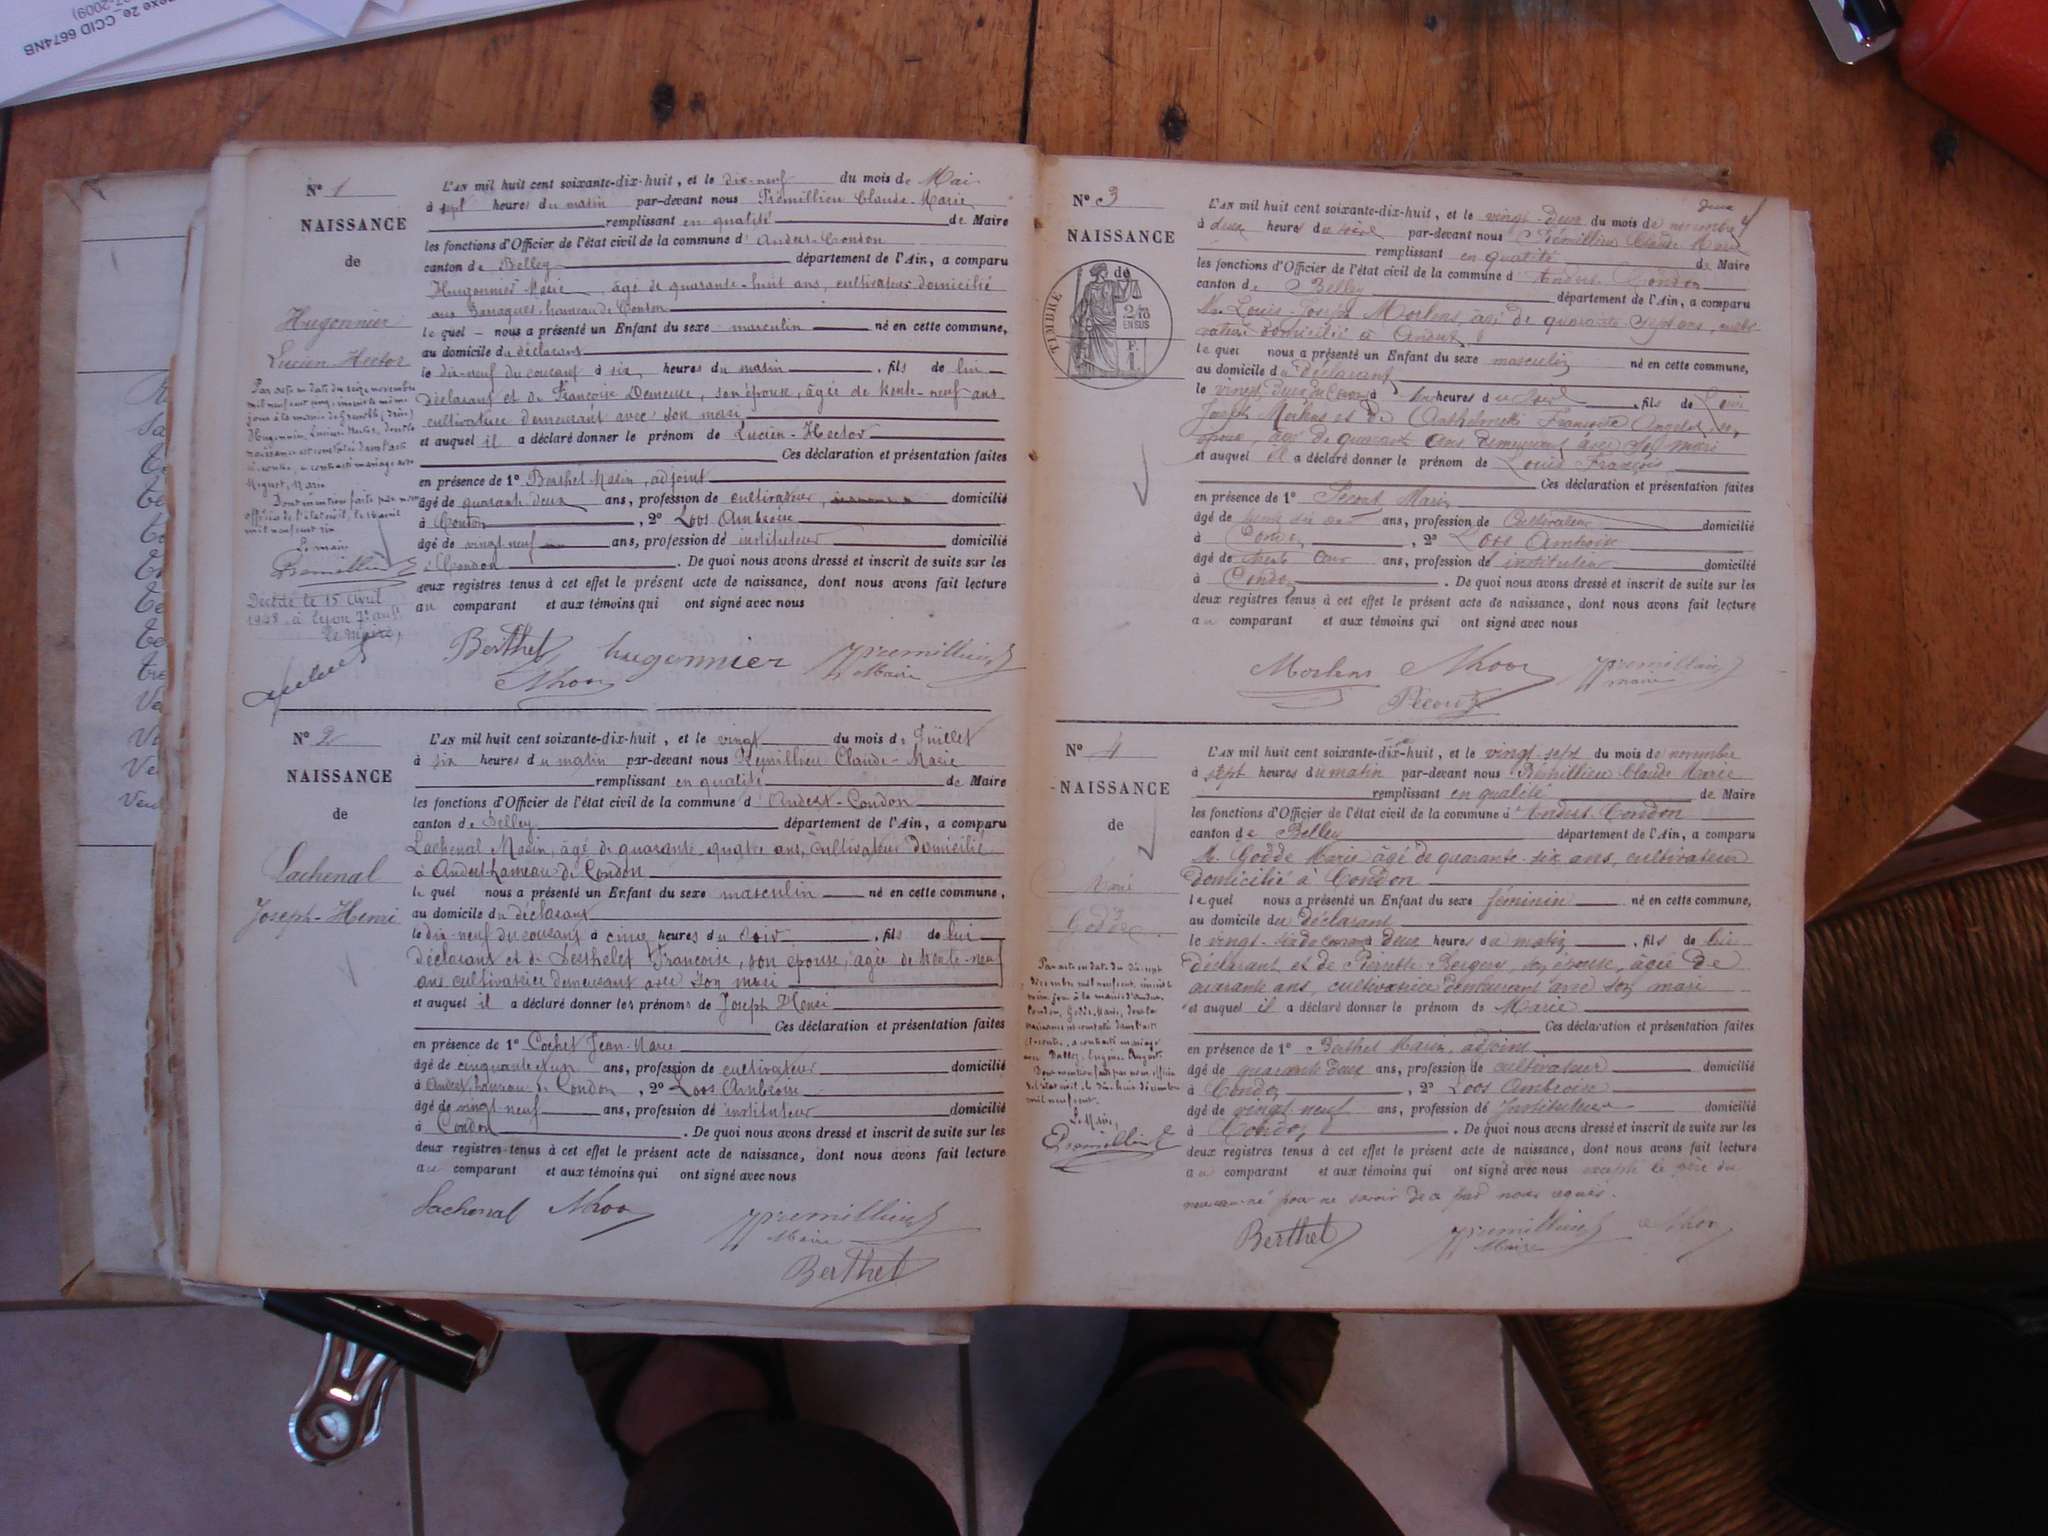 exe 2e_CCID 6674NB
-2009)
N° 1
NAISSANCE
de
Hugonnier
Lucien-Hector
Par acte en date du seize novembre
mil neuf cent cinq, inscrit le même
jour à la mairie de Grenoble (Isère)
Hugonnier Lucien Hector, dont la
naissance est constatée dans l'acte
ci-contre, a contracté mariage avec
Miguet, Marie
Dont mention faite par nous
officier de l'état civil, le
mil neuf cent six
Le maire
Premillieu
Décédé le 15 Avril
1928 à Lyon 7e arrt
Le maire,
L'AN mil huit cent soixante-dix-huit, et le dix-neuf du mois de Mai
à sept heures du matin par-devant nous Prémillieu Claude-Marie
remplissant en qualité de Maire
les fonctions d'Officier de l'état civil de la commune d'Andert-Condon
canton de Belley département de l'Ain, a comparu
Hugonnier Marie, âgé de quarante-huit ans, cultivateur domicilié
aux Baraques, hameau de Condon
le quel nous a présenté un Enfant du sexe masculin né en cette commune,
au domicile du déclarant
le dix-neuf du courant à six heures du matin, fils de lui
déclarant et de Françoise Demeure, son épouse, âgée de trente-neuf ans
cultivatrice demeurant avec son mari
et auquel il a déclaré donner le prénom de Lucien-Hector
Ces déclaration et présentation faites
en présence de 1° Berthet Marin, adjoint
âgé de quarante deux ans, profession de cultivateur, domicilié
à Condon, 2° Loos Ambroise
âgé de vingt neuf ans, profession de instituteur domicilié
à Condon. De quoi nous avons dressé et inscrit de suite sur les
deux registres tenus à cet effet le présent acte de naissance, dont nous avons fait lecture
au comparant et aux témoins qui ont signé avec nous
Berthet hugonnier Premillieu
ALoos Maire
N° 2
NAISSANCE
de
Lachenal
Joseph-Henri
L'AN mil huit cent soixante-dix-huit, et le vingt du mois de Juillet
à six heures du matin par-devant nous Prémillieu Claude-Marie
remplissant en qualité de Maire
les fonctions d'Officier de l'état civil de la commune d'Andert-Condon
canton de Belley département de l'Ain, a comparu
Lachenal Marin, âgé de quarante-quatre ans, cultivateur domicilié
à Andert hameau de Condon
le quel nous a présenté un Enfant du sexe masculin né en cette commune,
au domicile du déclarant
le dix-neuf du courant à cinq heures du soir, fils de lui
déclarant et de Berthelet Françoise, son épouse, âgée de trente-neuf
ans cultivatrice demeurant avec son mari
et auquel il a déclaré donner les prénoms de Joseph Henri
Ces déclaration et présentation faites
en présence de 1° Cochet Jean-Marie
âgé de cinquante et un ans, profession de cultivateur domicilié
à Andert, hameau de Condon, 2° Loos Ambroise
âgé de vingt-neuf ans, profession de instituteur domicilié
à Condon. De quoi nous avons dressé et inscrit de suite sur les
deux registres tenus à cet effet le présent acte de naissance, dont nous avons fait lecture
au comparant et aux témoins qui ont signé avec nous
Lachenal ALoos Premillieu
Maire
Berthet
N° 3
NAISSANCE
de
TIMBRE
2/10
EN SUS
F.
1
L'AN mil huit cent soixante-dix-huit, et le vingt-deux du mois de novembre
à deux heures du soir par-devant nous Prémillieu Claude Marie
remplissant en qualité de Maire
les fonctions d'Officier de l'état civil de la commune d'Andert Condon
canton de Belley département de l'Ain, a comparu
M. Louis Joseph Mortens, âgé de quarante sept ans, culti-
vateur domicilié à Andert
le quel nous a présenté un Enfant du sexe masculin né en cette commune,
au domicile du déclarant
le vingt deux du courant à heures du soir, fils de Louis
Joseph Mortens et de Anthelmette Françoise son
épouse, âgée de quarante ans demeurant avec son mari
et auquel il a déclaré donner le prénom de Louis François
Ces déclaration et présentation faites
en présence de 1° Pécout Marin
âgé de trente six ans, profession de Cultivateur domicilié
à Condon, 2° Loos Ambroise
âgé de ans, profession de instituteur domicilié
à Condon. De quoi nous avons dressé et inscrit de suite sur les
deux registres tenus à cet effet le présent acte de naissance, dont nous avons fait lecture
au comparant et aux témoins qui ont signé avec nous
Mortens ALoos Premillieu
Pécout maire
N° 4
NAISSANCE
de
Marie
Godde
Par acte en date du dix-sept
décembre mil neuf cent, inscrit le
même jour à la mairie d'Andert
Condon, Godde Marie, dont la
naissance est constatée dans l'acte
ci-contre, a contracté mariage
avec Eugène August
Dont mention faite par nous officier
de l'état civil, le dix huit décembre
mil neuf cent.
Le Maire,
Premillieu
L'AN mil huit cent soixante-dix-huit, et le vingt-sept du mois de novembre
à sept heures du matin par-devant nous Prémillieu Claude Marie
remplissant en qualité de Maire
les fonctions d'Officier de l'état civil de la commune d'Andert Condon
canton de Belley département de l'Ain, a comparu
M. Godde Marie âgé de quarante-six ans, cultivateur
domicilié à Condon
le quel nous a présenté un Enfant du sexe féminin né en cette commune,
au domicile du déclarant
le vingt-six du courant à deux heures du matin, fils de lui
déclarant et de Pierrette Bergeron, son épouse, âgée de
quarante ans, cultivatrice demeurant avec son mari
et auquel il a déclaré donner le prénom de Marie
Ces déclaration et présentation faites
en présence de 1° Berthet Marin, adjoint
âgé de quarante deux ans, profession de cultivateur domicilié
à Condon, 2° Loos Ambroise
âgé de vingt neuf ans, profession de Instituteur domicilié
à Condon. De quoi nous avons dressé et inscrit de suite sur les
deux registres tenus à cet effet le présent acte de naissance, dont nous avons fait lecture
au comparant et aux témoins qui ont signé avec nous excepté le père du
nouveau-né pour ne savoir de ce par nous requis.
Berthet Premillieu ALoos
Maire